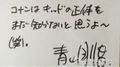 コナンはキッドの正体を
まだ知らないと思うよ〜
(笑)。
青山剛昌